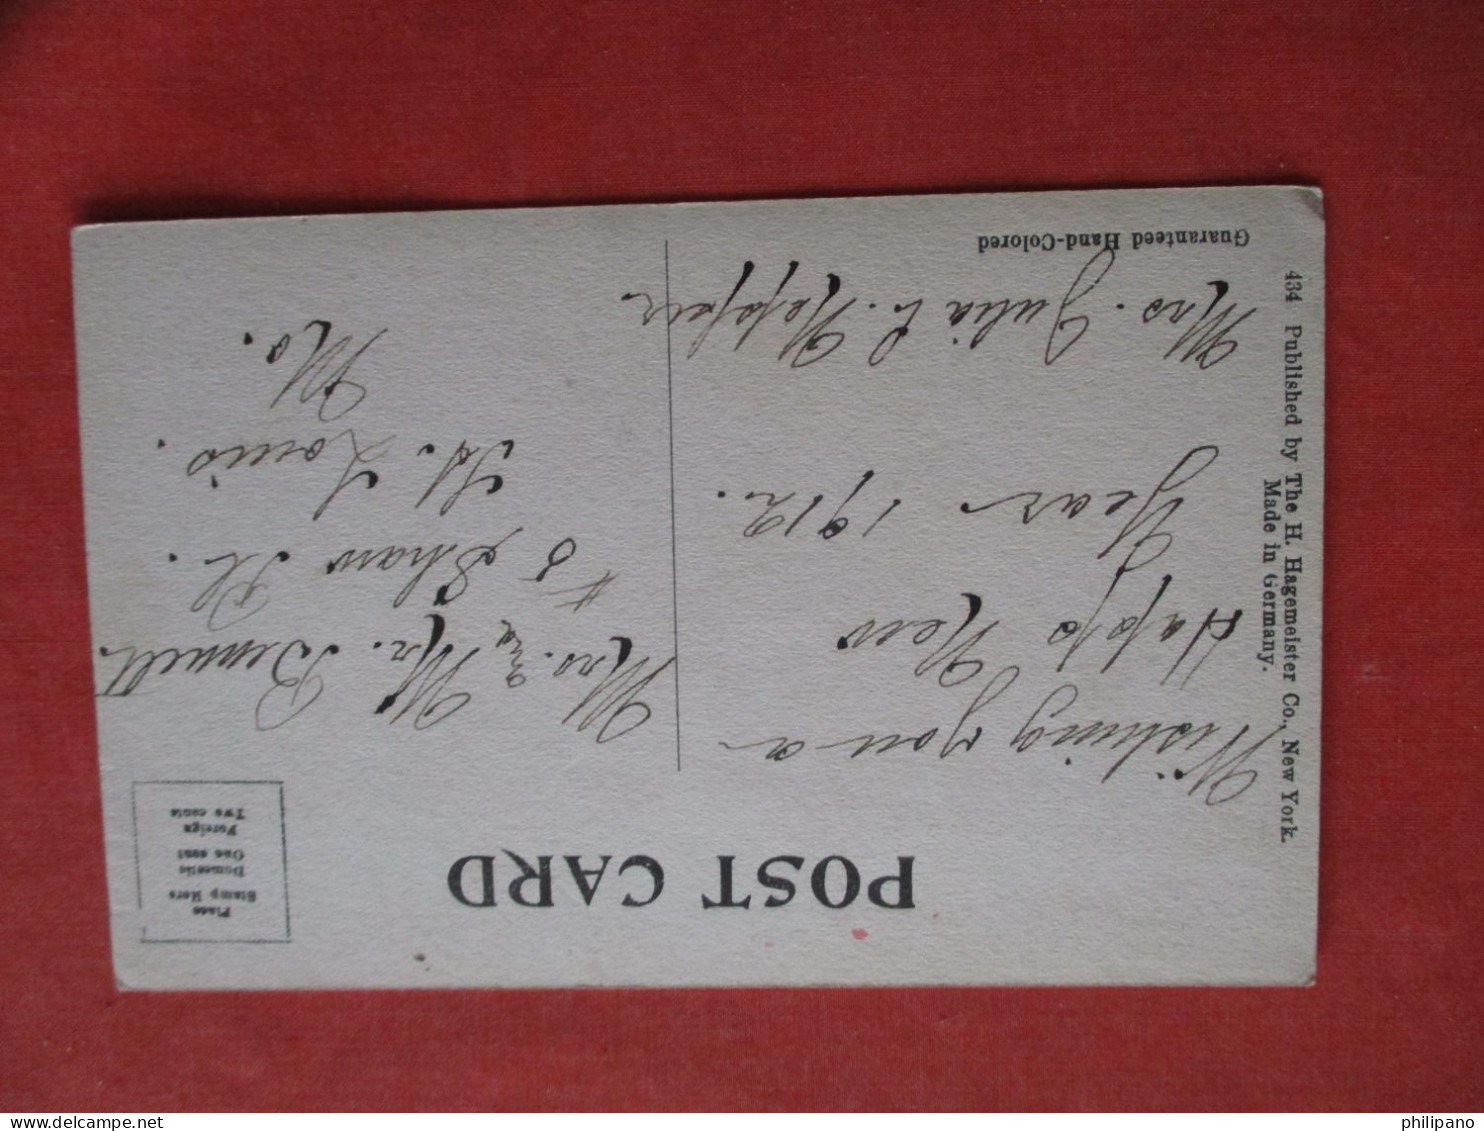 POST CARD
Place
Stamp Here
Domestic
One cent
Foreign
Two cents
Wishing you a
Happy New
Year 1912.
Mrs. Julia C.
Mrs. & Mr. Bennett.
#5 Shaw Pl.
St. Louis.
Mo.
434 Published by The H. Hagemeister Co., New York.
Made in Germany.
Guaranteed Hand-Colored
philipano